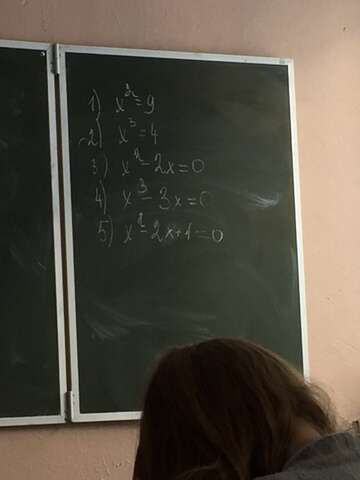 1) x² = 9
2) x³ = 4
3) x² - 2x = 0
4) x³ - 3x = 0
5) x² - 2x + 1 = 0